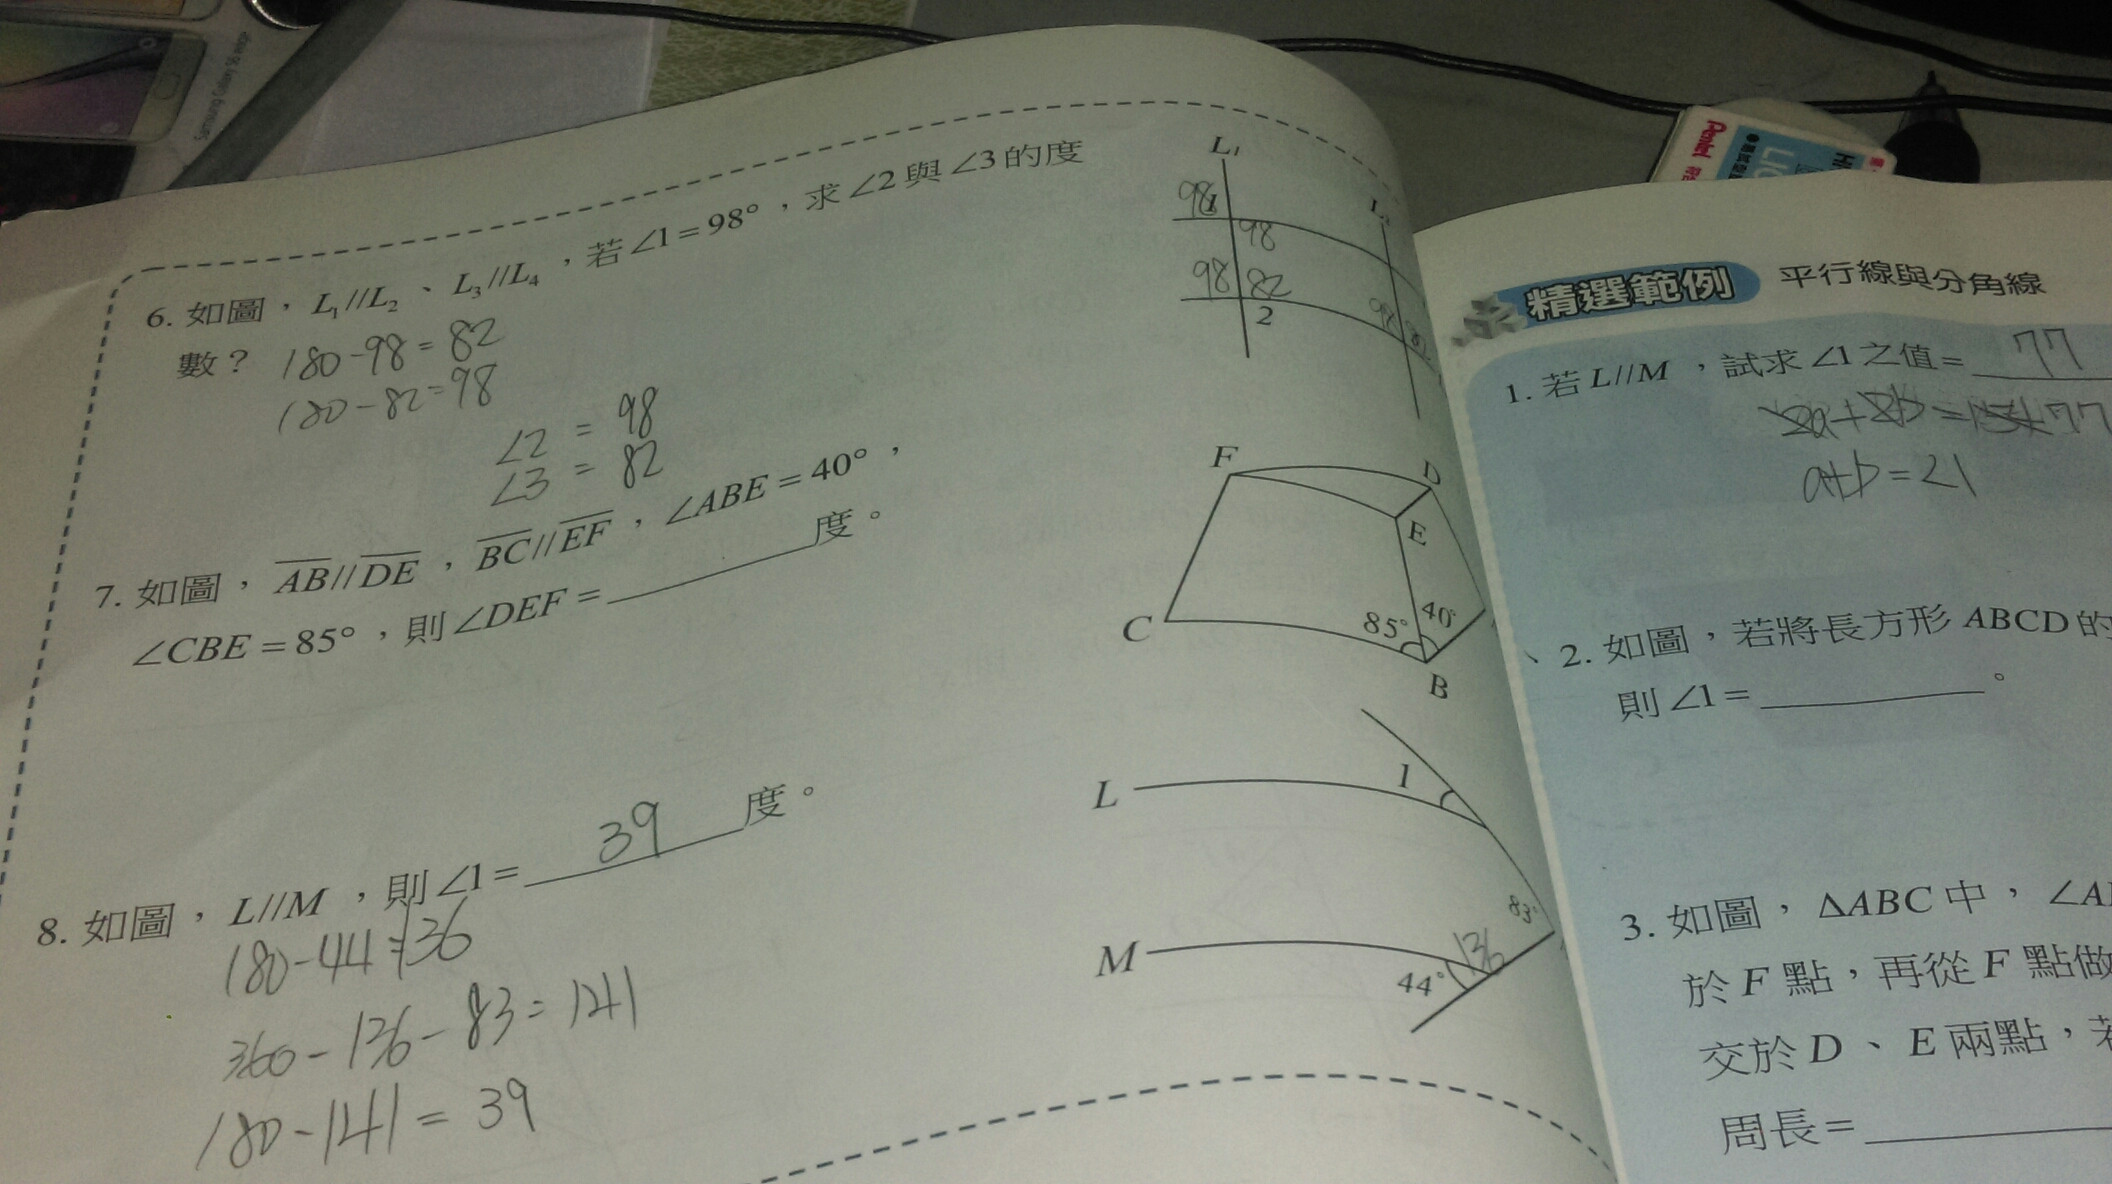 6. 如圖，L₁//L₂、L₃//L₄，若∠1=98°，求∠2與∠3的度
數？ 180-98=82
180-82=98
∠2 = 98
∠3 = 82
L₁
98 1
98
98 82
2
98
7. 如圖，AB//DE，BC//EF，∠ABE=40°，
∠CBE=85°，則∠DEF=________度。
F
D
E
C
85° 40°
B
8. 如圖，L//M，則∠1= 39 度。
180-44=136
360-136-83=141
180-141=39
L
1
83°
M
44° 136
精選範例 平行線與分角線
1. 若L//M，試求∠1之值= 77
a+b=21
2. 如圖，若將長方形ABCD的
則∠1=________。
3. 如圖，ΔABC中，∠A
於F點，再從F點做
交於D、E兩點，若
周長=________
Samsung Galaxy S6 edge
Pentel